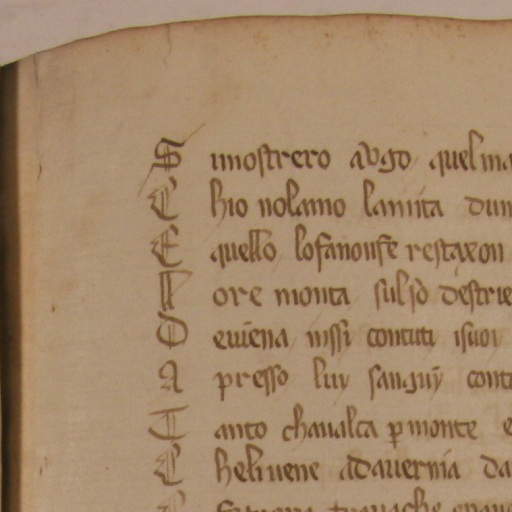 S imostrero avgo quel ma
C hio nolamo lamita dun
E quello lofanonse restaxon
M ore monta sulso destrie
D euiena inssi contuti isuoi
A presso luy sanguij cont
T anto chaualca p monte e
C heliuene adauernia da